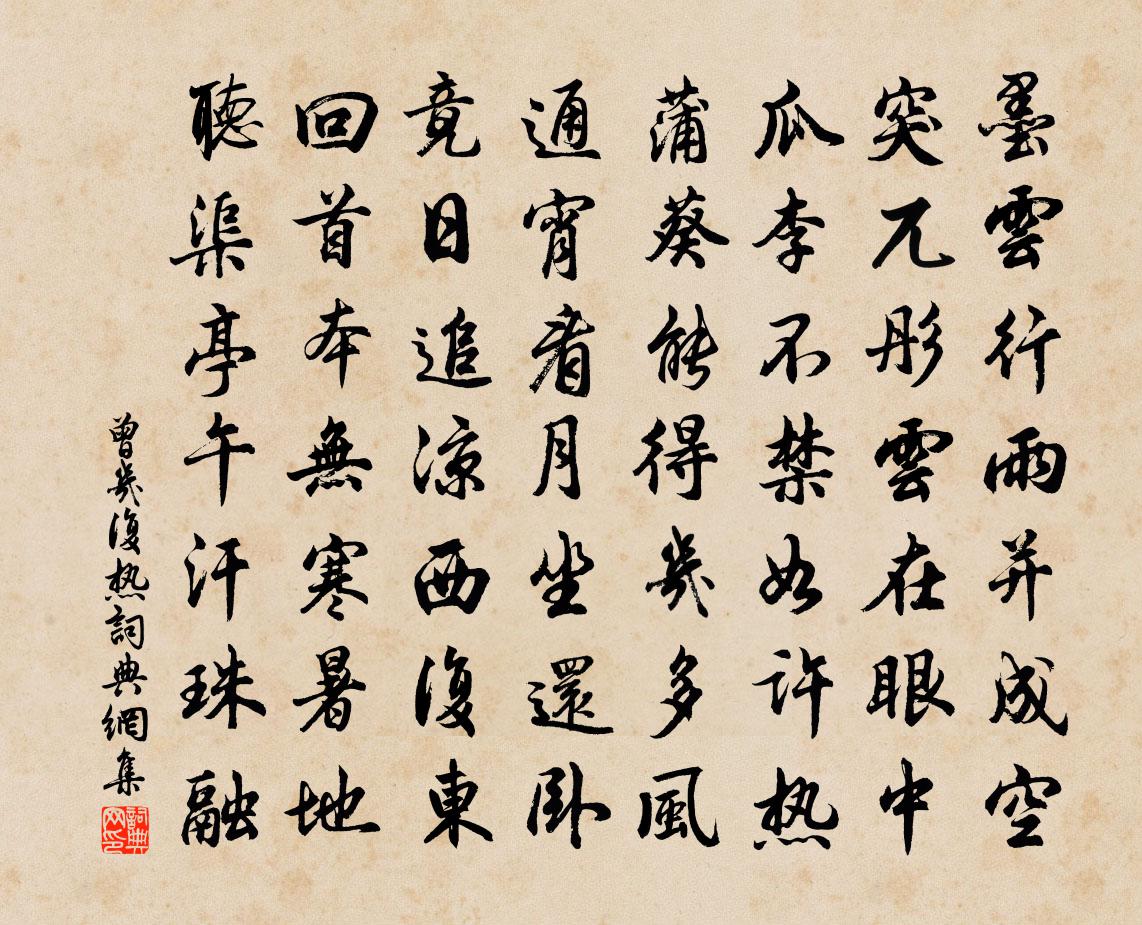 墨雲行雨并成空
突兀彤雲在眼中
瓜李不禁如許热
蒲葵能得幾多風
通宵看月坐還卧
竟日追涼西復東
回首本無寒暑地
聽渠亭午汗珠融
曾幾復热詞典網集
詞典网印